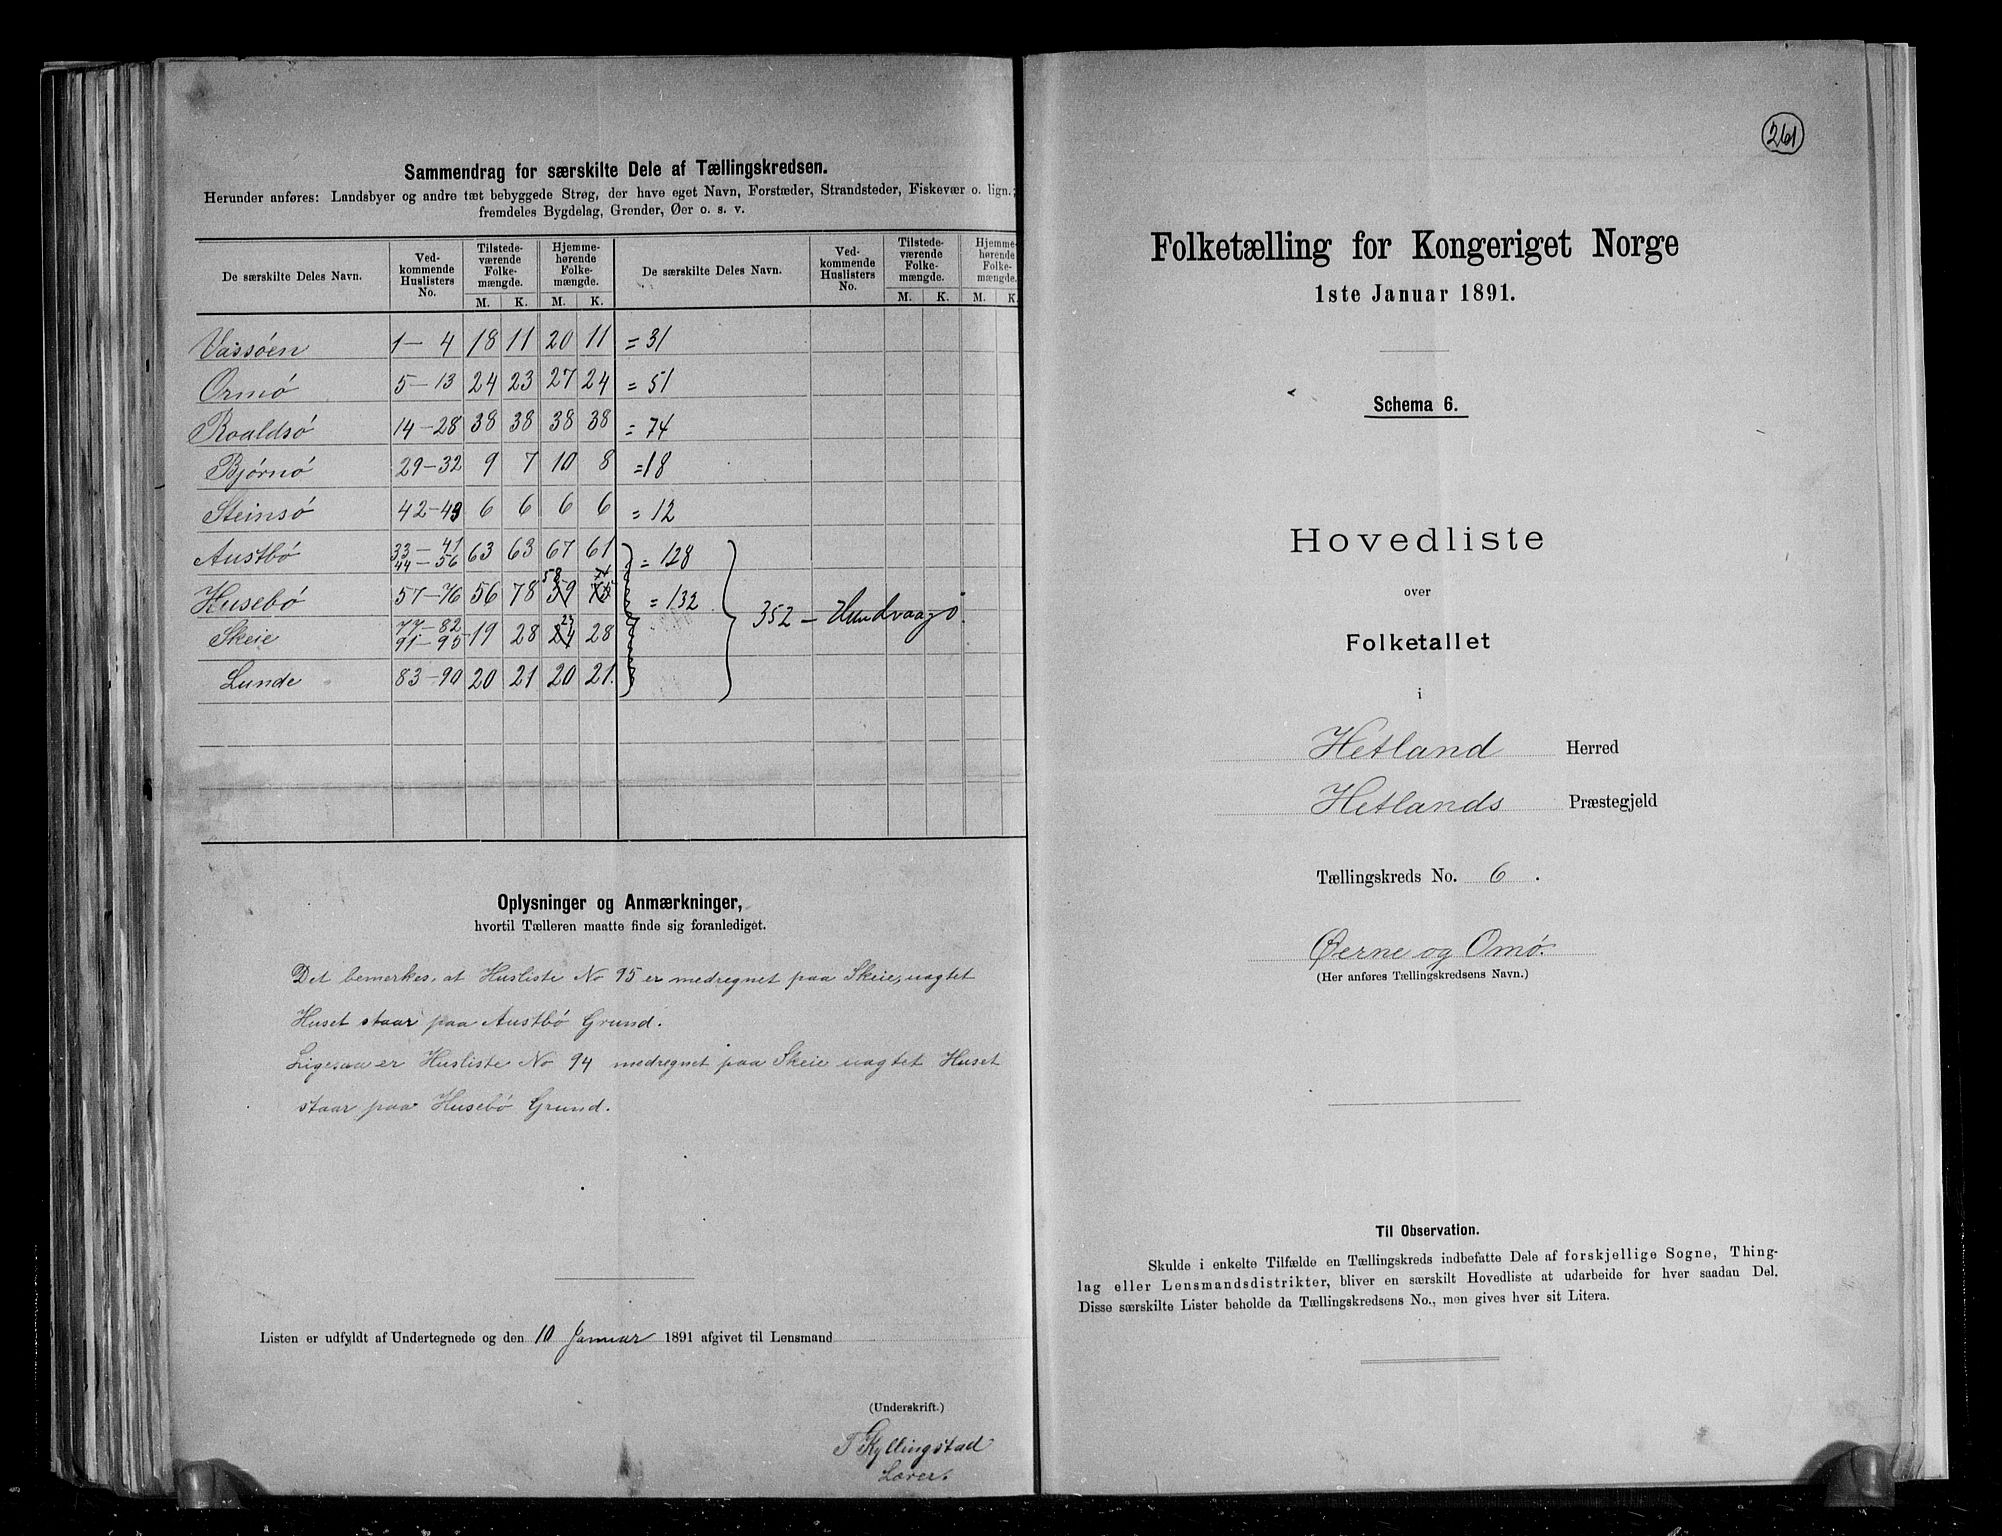 Sammendrag for særskilte Dele af Tællingskredsen.
Herunder anføres: Landsbyer og andre tæt bebyggede Strøg, der have eget Navn, Forstæder, Strandsteder, Fiskevær o. lign.;
fremdeles Bygdelag, Grender, Øer o. s. v.
De særskilte Deles Navn. Ved-kommende Huslisters No. Tilstede-værende Folke-mængde. Hjemme-hørende Folke-mængde. De særskilte Deles Navn. Ved-kommende Huslisters No. Tilstede-værende Folke-mængde. Hjemme-hørende Folke-mængde.
M. K. M. K. M. K. M. K.
Vassøen 1-4 18 11 20 11 = 31
Ormø 5-13 24 23 27 24 = 51
Roaldsø 14-28 38 38 38 38 = 74
Bjørnø 29-32 9 7 10 8 = 18
Steinsø 42-43 6 6 6 6 = 12
Austbø 33-41 44-56 63 63 67 61 = 128
Husebø 57-76 56 78 58 59 74 75 = 132 352 - Hundvaagø
Skeie 77-82 91-95 19 28 23 24 28
Lunde 83-90 20 21 20 21
Oplysninger og Anmærkninger,
hvortil Tælleren maatte finde sig foranlediget.
Det bemerkes, at Husliste No 95 er medregnet paa Skeie, uagtet
Huset staar paa Austbø Grund.
Ligesaa er Husliste No 94 medregnet paa Skeie uagtet Huset
staar paa Husebø Grund.
Listen er udfyldt af Undertegnede og den 10 Januar 1891 afgivet til Lensmand
(Underskrift.)
T Kyllingstad
Lærer.
261
Folketælling for Kongeriget Norge
1ste Januar 1891.
Schema 6.
Hovedliste
over
Folketallet
i
Hetland Herred
Hetlands Præstegjeld
Tællingskreds No. 6.
Øerne og Omø.
(Her anføres Tællingskredsens Navn.)
Til Observation.
Skulde i enkelte Tilfælde en Tællingskreds indbefatte Dele af forskjellige Sogne, Thing-
lag eller Lensmandsdistrikter, bliver en særskilt Hovedliste at udarbeide for hver saadan Del.
Disse særskilte Lister beholde da Tællingskredsens No., men gives hver sit Litera.